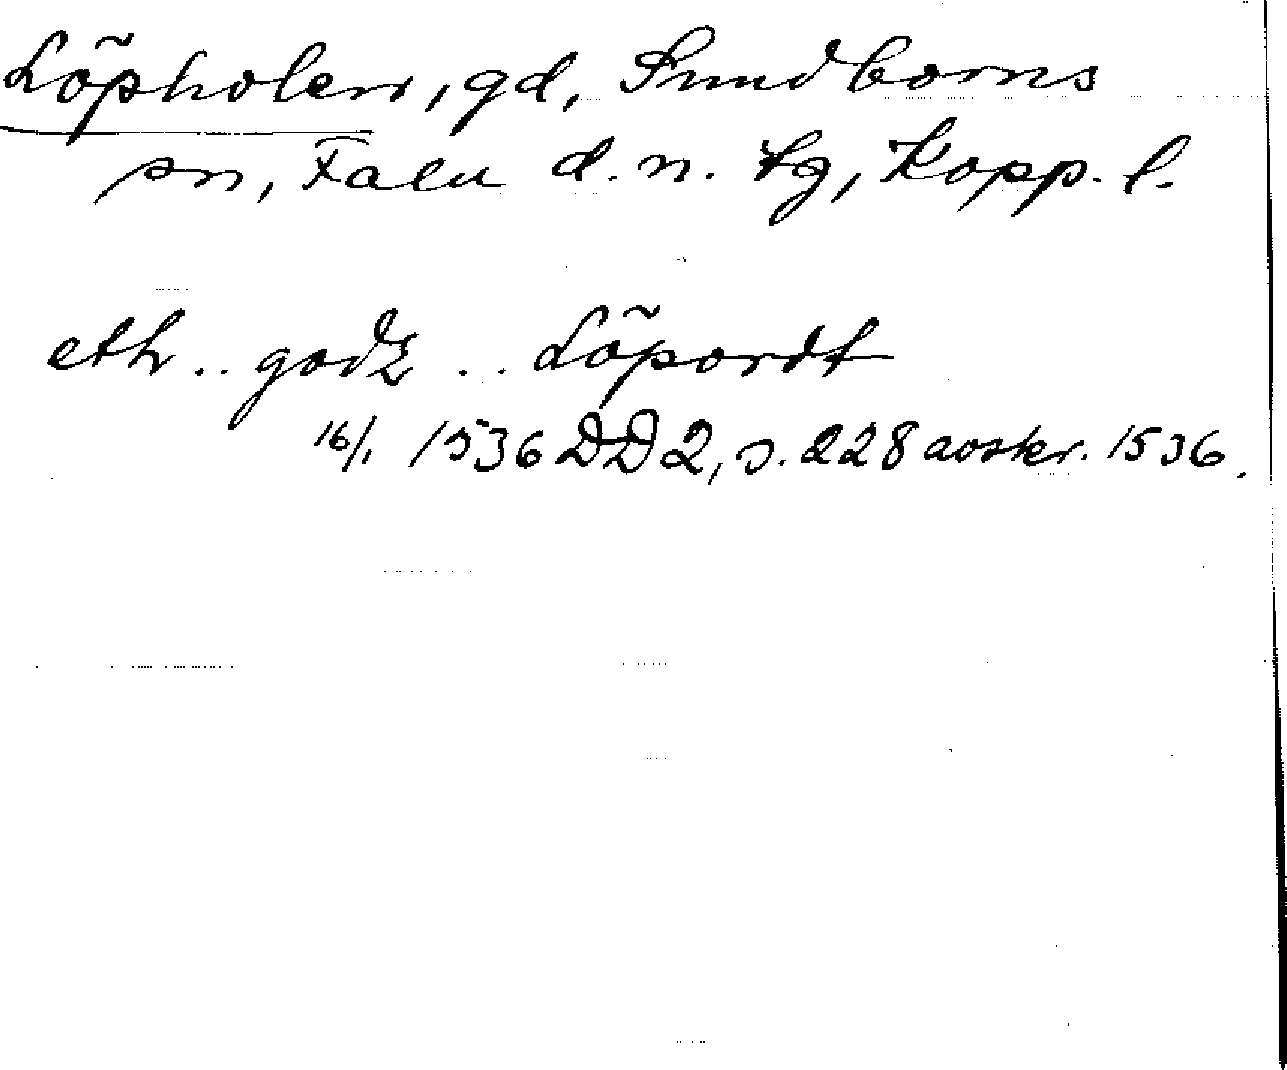 Löpholen, gd, Sundborns
sn, Falu d. n. tg, Kopp. l.
eth .. godz .. Löpordt
16/1 1536 DD 2, s. 228 avskr. 1536.